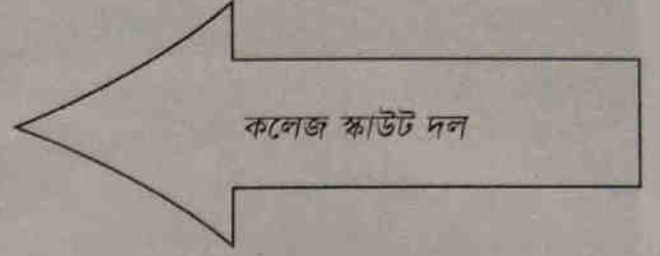 কলেজ স্কাউট দল